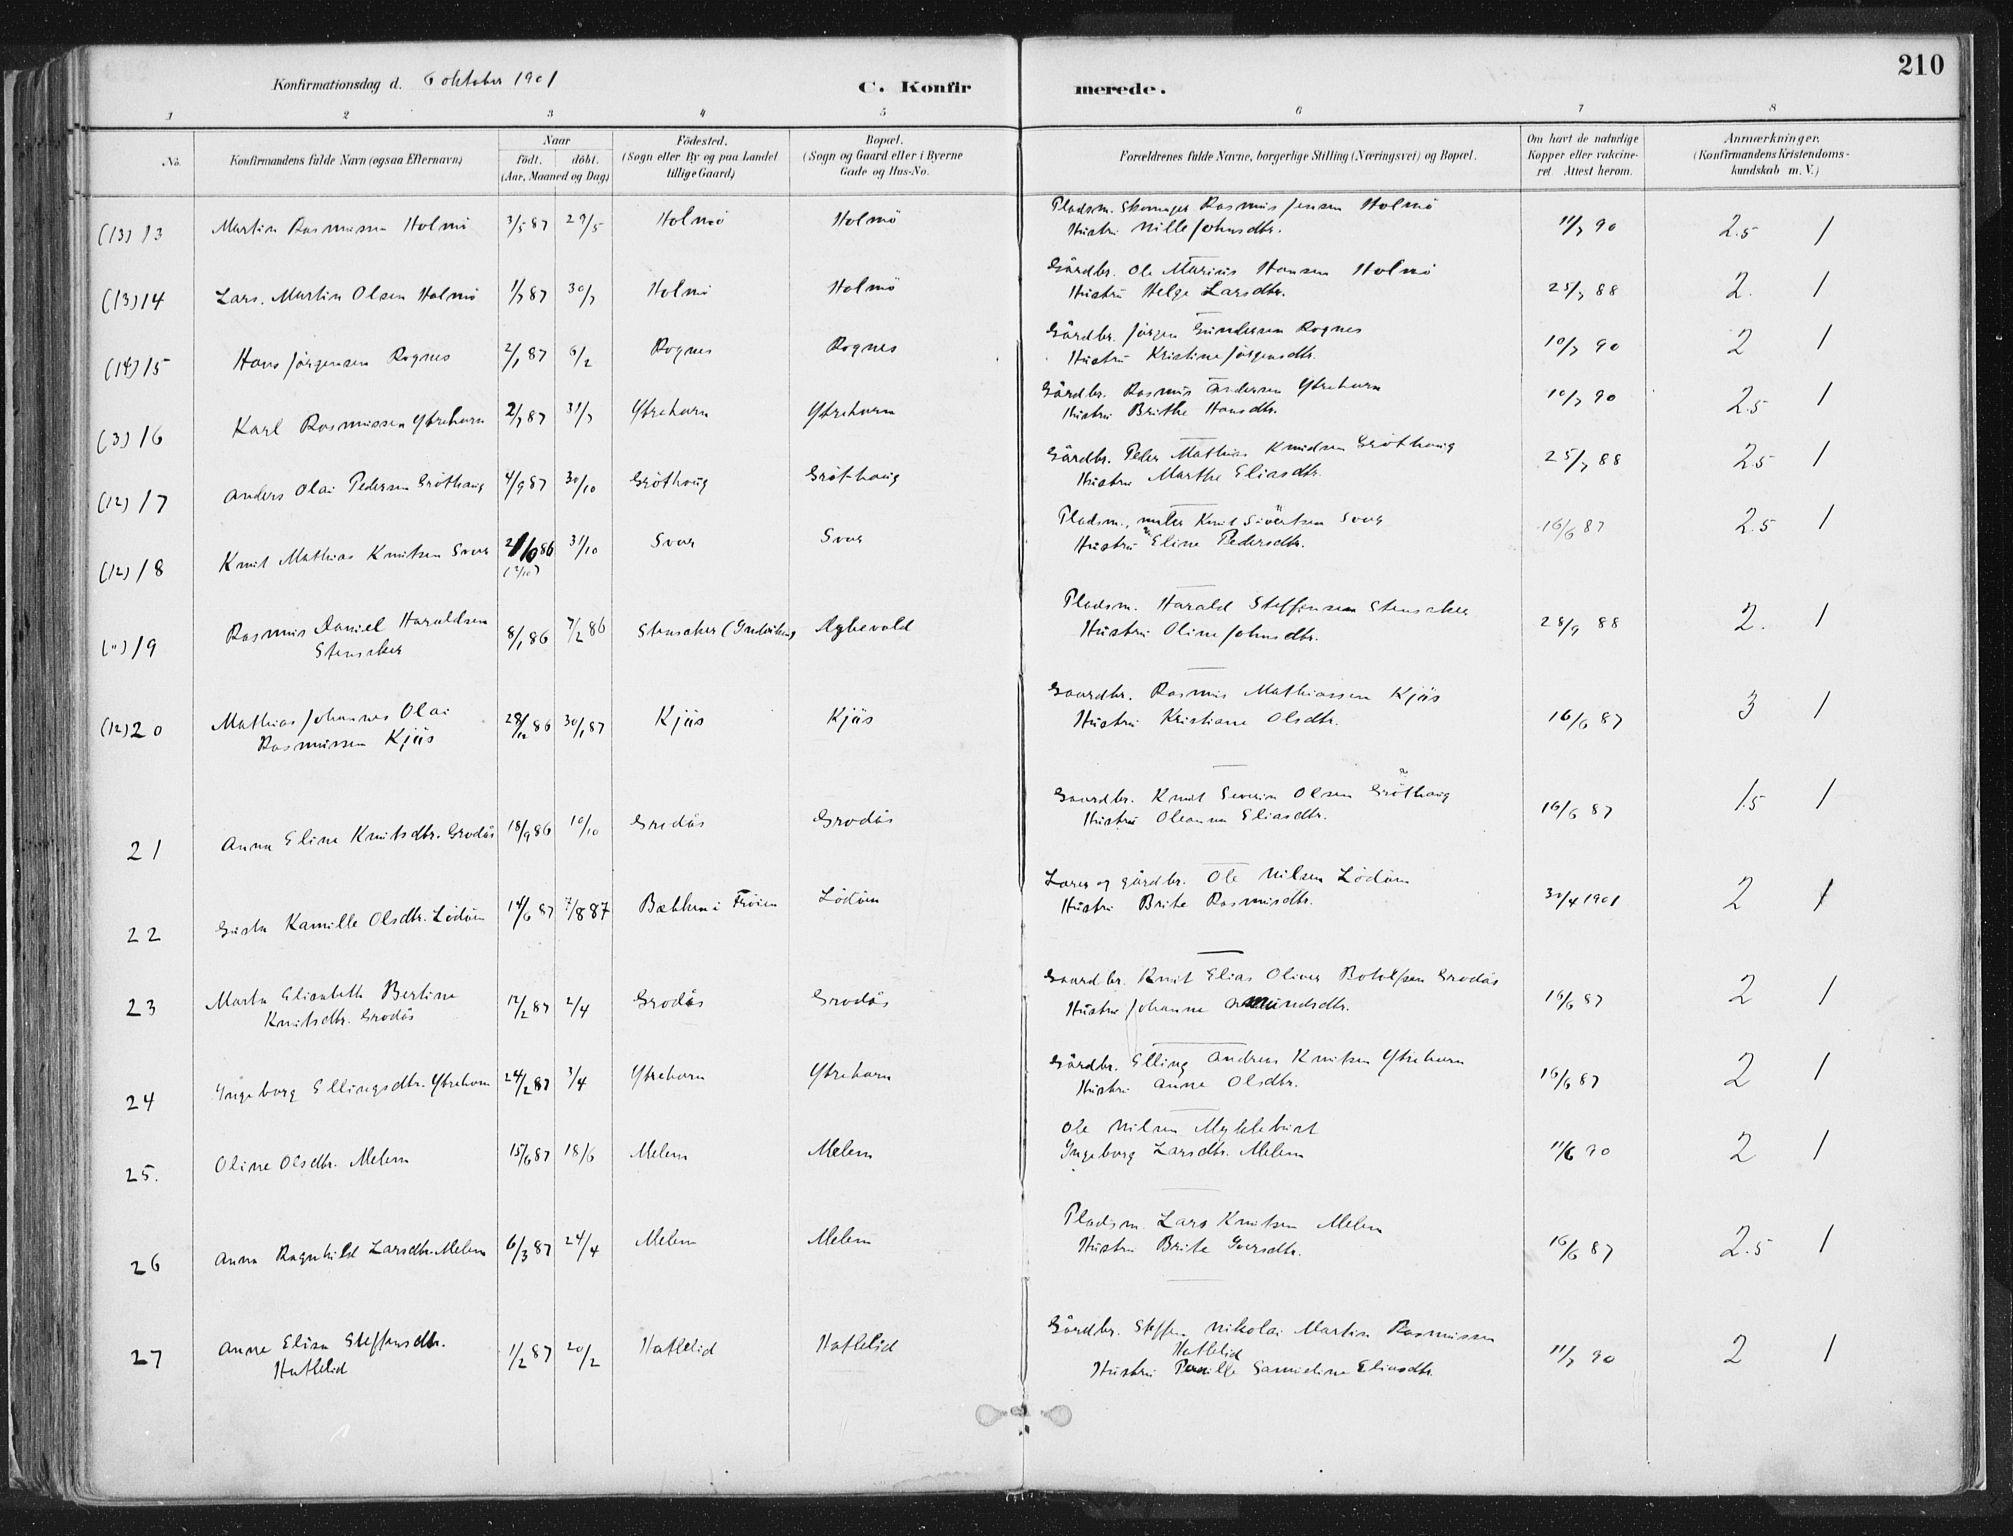 210
Konfirmationsdag d. 6 oktober 1901
C. Konfirmerede.
1 2 3 4 5 6 7 8
No. Konfirmandens fulde Navn (ogsaa Efternavn) Naar födt. döbt. (Aar, Maaned og Dag) Födested. (Sogn eller By og paa Landet tillige Gaard) Bopæl. (Sogn og Gaard eller i Byerne Gade og Hus-No. Forældrenes fulde Navne, borgerlige Stilling (Næringsvei) og Bopæl. Om havt de naturlige Kopper eller vakcineret Attest herom. Anmærkninger. (Konfirmandens Kristendomskundskab m. V.)
(13) 13 Martin Rasmussen Holmö 3/5 87 29/5 Holmö Holmö Pladsm. Skomager Rasmus Jensen Holmö 11/7 90 2.5 1
Hustru Nille Johnsdtr.
(13) 14 Lars. Martin Olsen Holmö 1/7 87 30/7 Holmö Holmö Gårdbr. Ole Marius Hansen Holmö 25/7 88 2. 1
Hustru Helge Larsdtr.
(14) 15 Hans Jörgensen Rognes 2/1 87 6/2 Rognes Rognes Gårdbr. Jörgen Gundersen Rognes 10/7 90 2 1
Hustru Kristine Jörgensdtr.
(3) 16 Karl Rasmussen Ytrehorn 2/7 87 31/7 Ytrehorn Ytrehorn Gårdbr. Rasmus Andersen Ytrehorn 10/7 90 2.5 1
Hustru Brithe Hansdtr.
(12) 17 Anders Olai Pedersen Gröthaug 4/9 87 30/10 Gröthaug Gröthaug Gårdbr. Peder Mathias Knudsen Gröthaug 25/7 88 2.5 1
Hustru Marthe Eliasdtr.
(12) 18 Knut Mathias Knutsen Svor 86 31/10 Svor Svor Pladsm., maler Knut Sivertsen Svor 16/6 87 2.5 1
(2/10)
Hustru Eline Pedersdtr.
(") 19 Rasmus Daniel Haraldsen 8/1 86 7/2 86 Stensaker Nybevold Pladsm. Harald Steffensen Stensaker 28/9 88 2. 1
Stensaker
Hustru Oline Johnsdtr.
(12) 20 Mathias Johannes Olai 28/12 86 30/1 87 Kjøs Kjøs Gaardbr. Rasmus Mathiassen Kjøs 16/6 87 3 1
Rasmussen Kjøs
Hustru Kristiane Olsdtr.
21 Anna Eline Knutsdtr. Grodås 18/9 86 10/10 Grodås Grodås Gaardbr. Knut Severin Olsen Gröthaug 16/6 87 1.5 1
Hustru Oleanna Eliasdtr.
22 Gusta Kamille Olsdtr. Lödöen 14/6 87 7/8 87 Bækken i Fröien Lödöen Lærer og gårdbr. Ole Nilsen Lödöen 30/4 1901 2 1
Hustru Brite Rasmusdtr.
23 Marta Elisabeth Bertine 12/2 87 2/4 Grodås Grodås Gaardbr. Knut Elias Oliver Botolfsen Grodås 16/6 87 2 1
Knutsdtr. Grodås
Hustru Johanne Amundsdtr.
24 Ingeborg Ellingsdtr. Ytrehorn 24/2 87 3/4 Ytrehorn Ytrehorn Gårdbr. Elling Andreas Knutsen Ytrehorn 16/6 87 2 1
Hustru Anne Olsdtr.
25. Oline Olsdtr. Melem 15/6 87 18/6 Melem Melem Ole Nilsen Myklebust 11/6 90 2 1
Ingeborg Larsdtr. Melem
26 Anna Ragnhild Larsdtr. Melem 6/3 87 24/4 Melem Melem Pladsm. Lars Knutsen Melem 16/6 87 2.5 1
Hustru Brite Iversdtr.
27 Anne Elisa Steffensdtr. 1/2 87 20/2 Hatlelid Hatlelid Gårdbr. Steffen Nikolai Martin Rasmussen 11/7 90 2 1
Hatlelid Hatlelid
Hustru Pernille Samueline Eliasdtr.